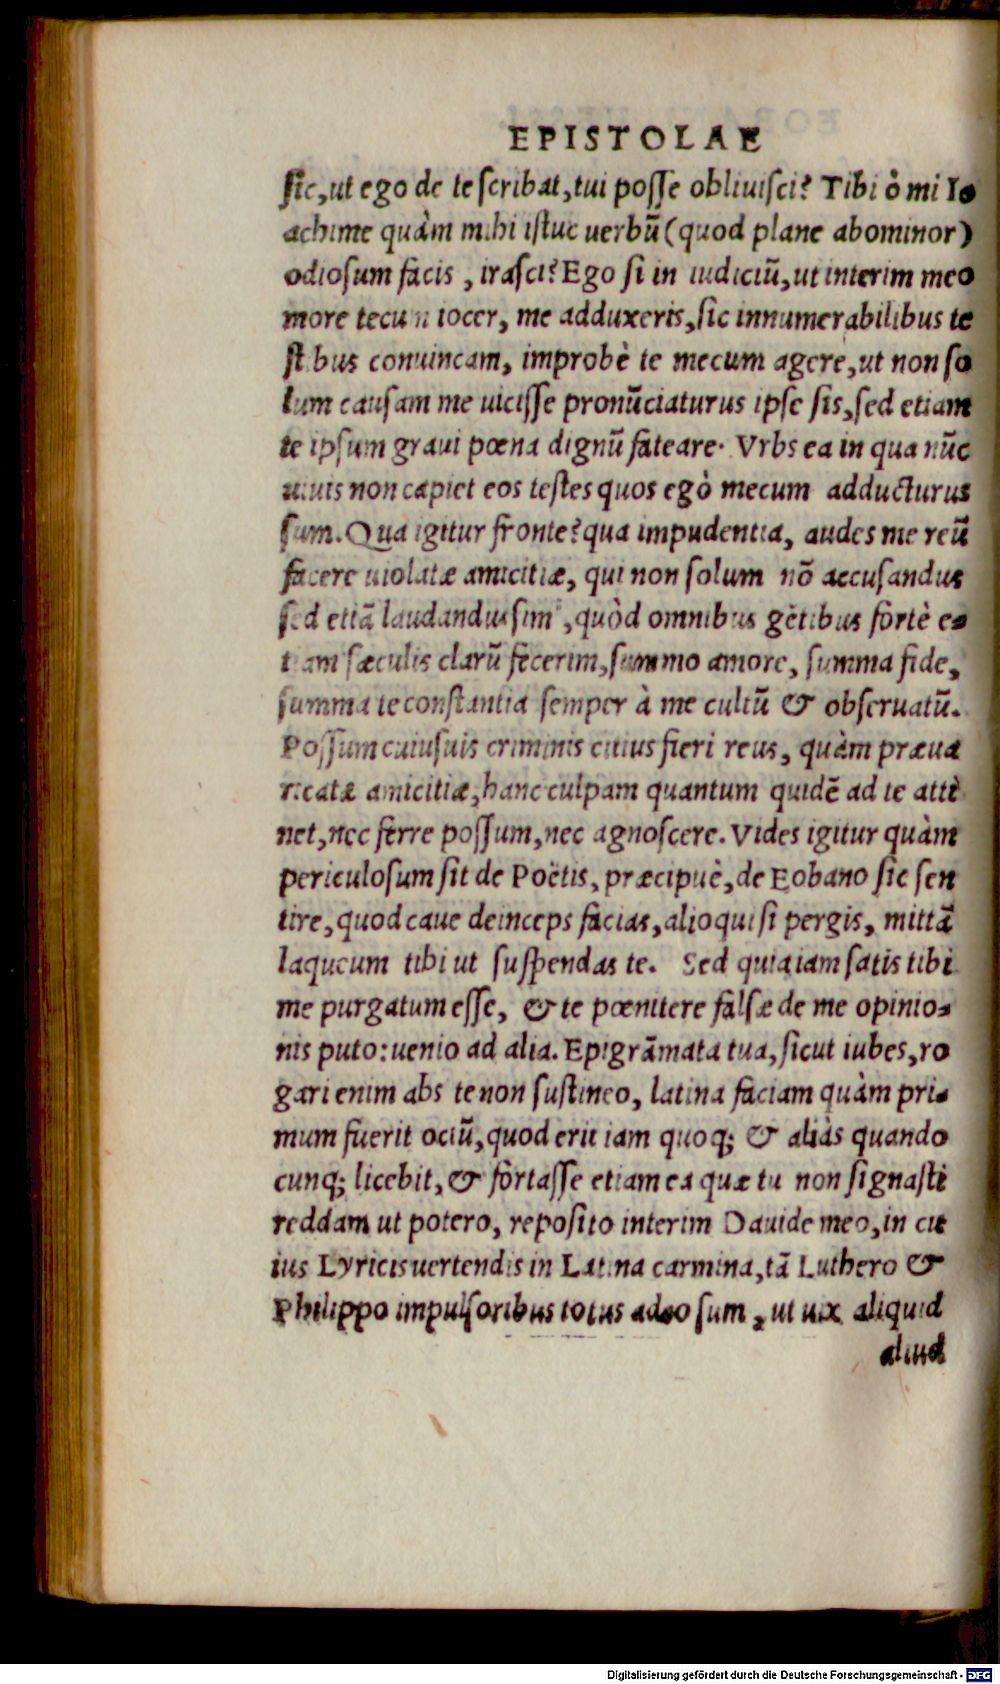 EPISTOLAE
sic, ut ego de te scribat, tui posse obliuisci? Tibi ò mi Io-
achime quàm mihi istuc uerbũ (quod plane abominor)
odiosum facis, irasci? Ego si in iudiciũ, ut interim meo
more tecum iocer, me adduxeris, sic innumerabilibus te
stibus conuincam, improbè te mecum agere, ut non so
lum causam me uicisse pronũciaturus ipse sis, sed etiam
te ipsum graui pœna dignũ fateare. Vrbs ea in qua nũc
uiuis non capiet eos testes quos egò mecum adducturus
sum. Qua igitur fronte? qua impudentia, audes me reũ
facere uiolatæ amicitiæ, qui non solum nõ accusandus
sed etiã laudandus sim, quòd omnibus gẽtibus fortè e-
tiam sæculis clarũ fecerim, summo amore, summa fide,
summa te constantia semper à me cultũ & obseruatũ.
Possum cuiusuis criminis citius fieri reus, quàm præua
ricatæ amicitiæ, hanc culpam quantum quidẽ ad te atti
net, nec ferre possum, nec agnoscere. Vides igitur quàm
periculosum sit de Poëtis, præcipuè, de Eobano sic sen
tire, quod caue deinceps facias, alioqui si pergis, mittã
laqueum tibi ut suspendas te. Sed quia iam satis tibi
me purgatum esse, & te pœnitere falsæ de me opinio-
nis puto: uenio ad alia. Epigrãmata tua, sicut iubes, ro
gari enim abs te non sustineo, latina faciam quàm pri-
mum fuerit ociũ, quod erit iam quoq; & aliàs quando
cunq; licebit, & fortasse etiam ea quæ tu non signasti
reddam ut potero, reposito interim Dauide meo, in cu
ius Lyricis uertendis in Latina carmina, tã Luthero &
Philippo impulsoribus totus adeo sum, ut uix aliquid
aliud
Digitalisierung gefördert durch die Deutsche Forschungsgemeinschaft - DFG